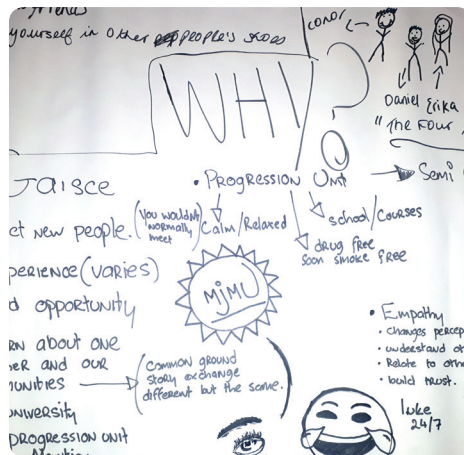 yourself in other people's shoes
CONOR
Daniel Erika
"The Four
WHY?
GAISCE
• PROGRESSION Unit
Semi
et new people. (You wouldn't normally meet)
Calm/Relaxed
school/Courses
drug free
Soon smoke free
perience (varies)
d opportunity
MJMU
rn about one
er and our
unities
Common ground
story exchange
different but the same.
university
PROGRESSION UNIT
• Empathy
• changes percep
• understand ot
• Relate to othe
• build trust.
luke
24/7